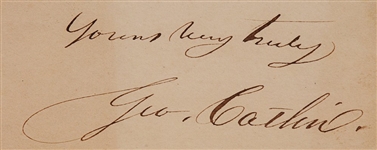 Yours very truly
Geo. Catlin.